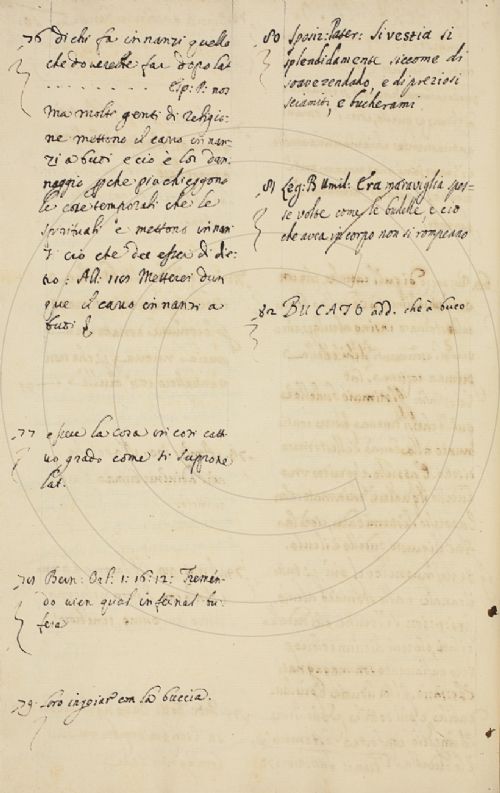 76 di chi fa innanzi quello
che doverebbe far dopo lat
. . . . . . . . Esp: P: nos
ma molte genti di religio-
ne mettono il carro innan-
zi a buoi e ciò è lor dan-
naggio che più chieggono
le cose temporali che le
spirituali e mettono innan-
zi ciò che dee esser di die-
tro: All: Metterei dun
que il carro innanzi a
buoi
77 essere la cosa in così catti-
vo grado come si suppone
lat.
78 Bern: Orl: 1: 16: 12: Tremen-
do vien qual infernal bu-
fera
79 loro ingoiar con la buccia.
80 Sposiz: Pater: Si vestia sì
splendidamente siccome di
soave zendado, e di preziosi
sciamiti, e bucherami.
81 Leg: B Umil: Era maraviglia pos-
se volte come le budella e ciò
che avea in corpo non si rompeano
82 BUCATO add. che à buco